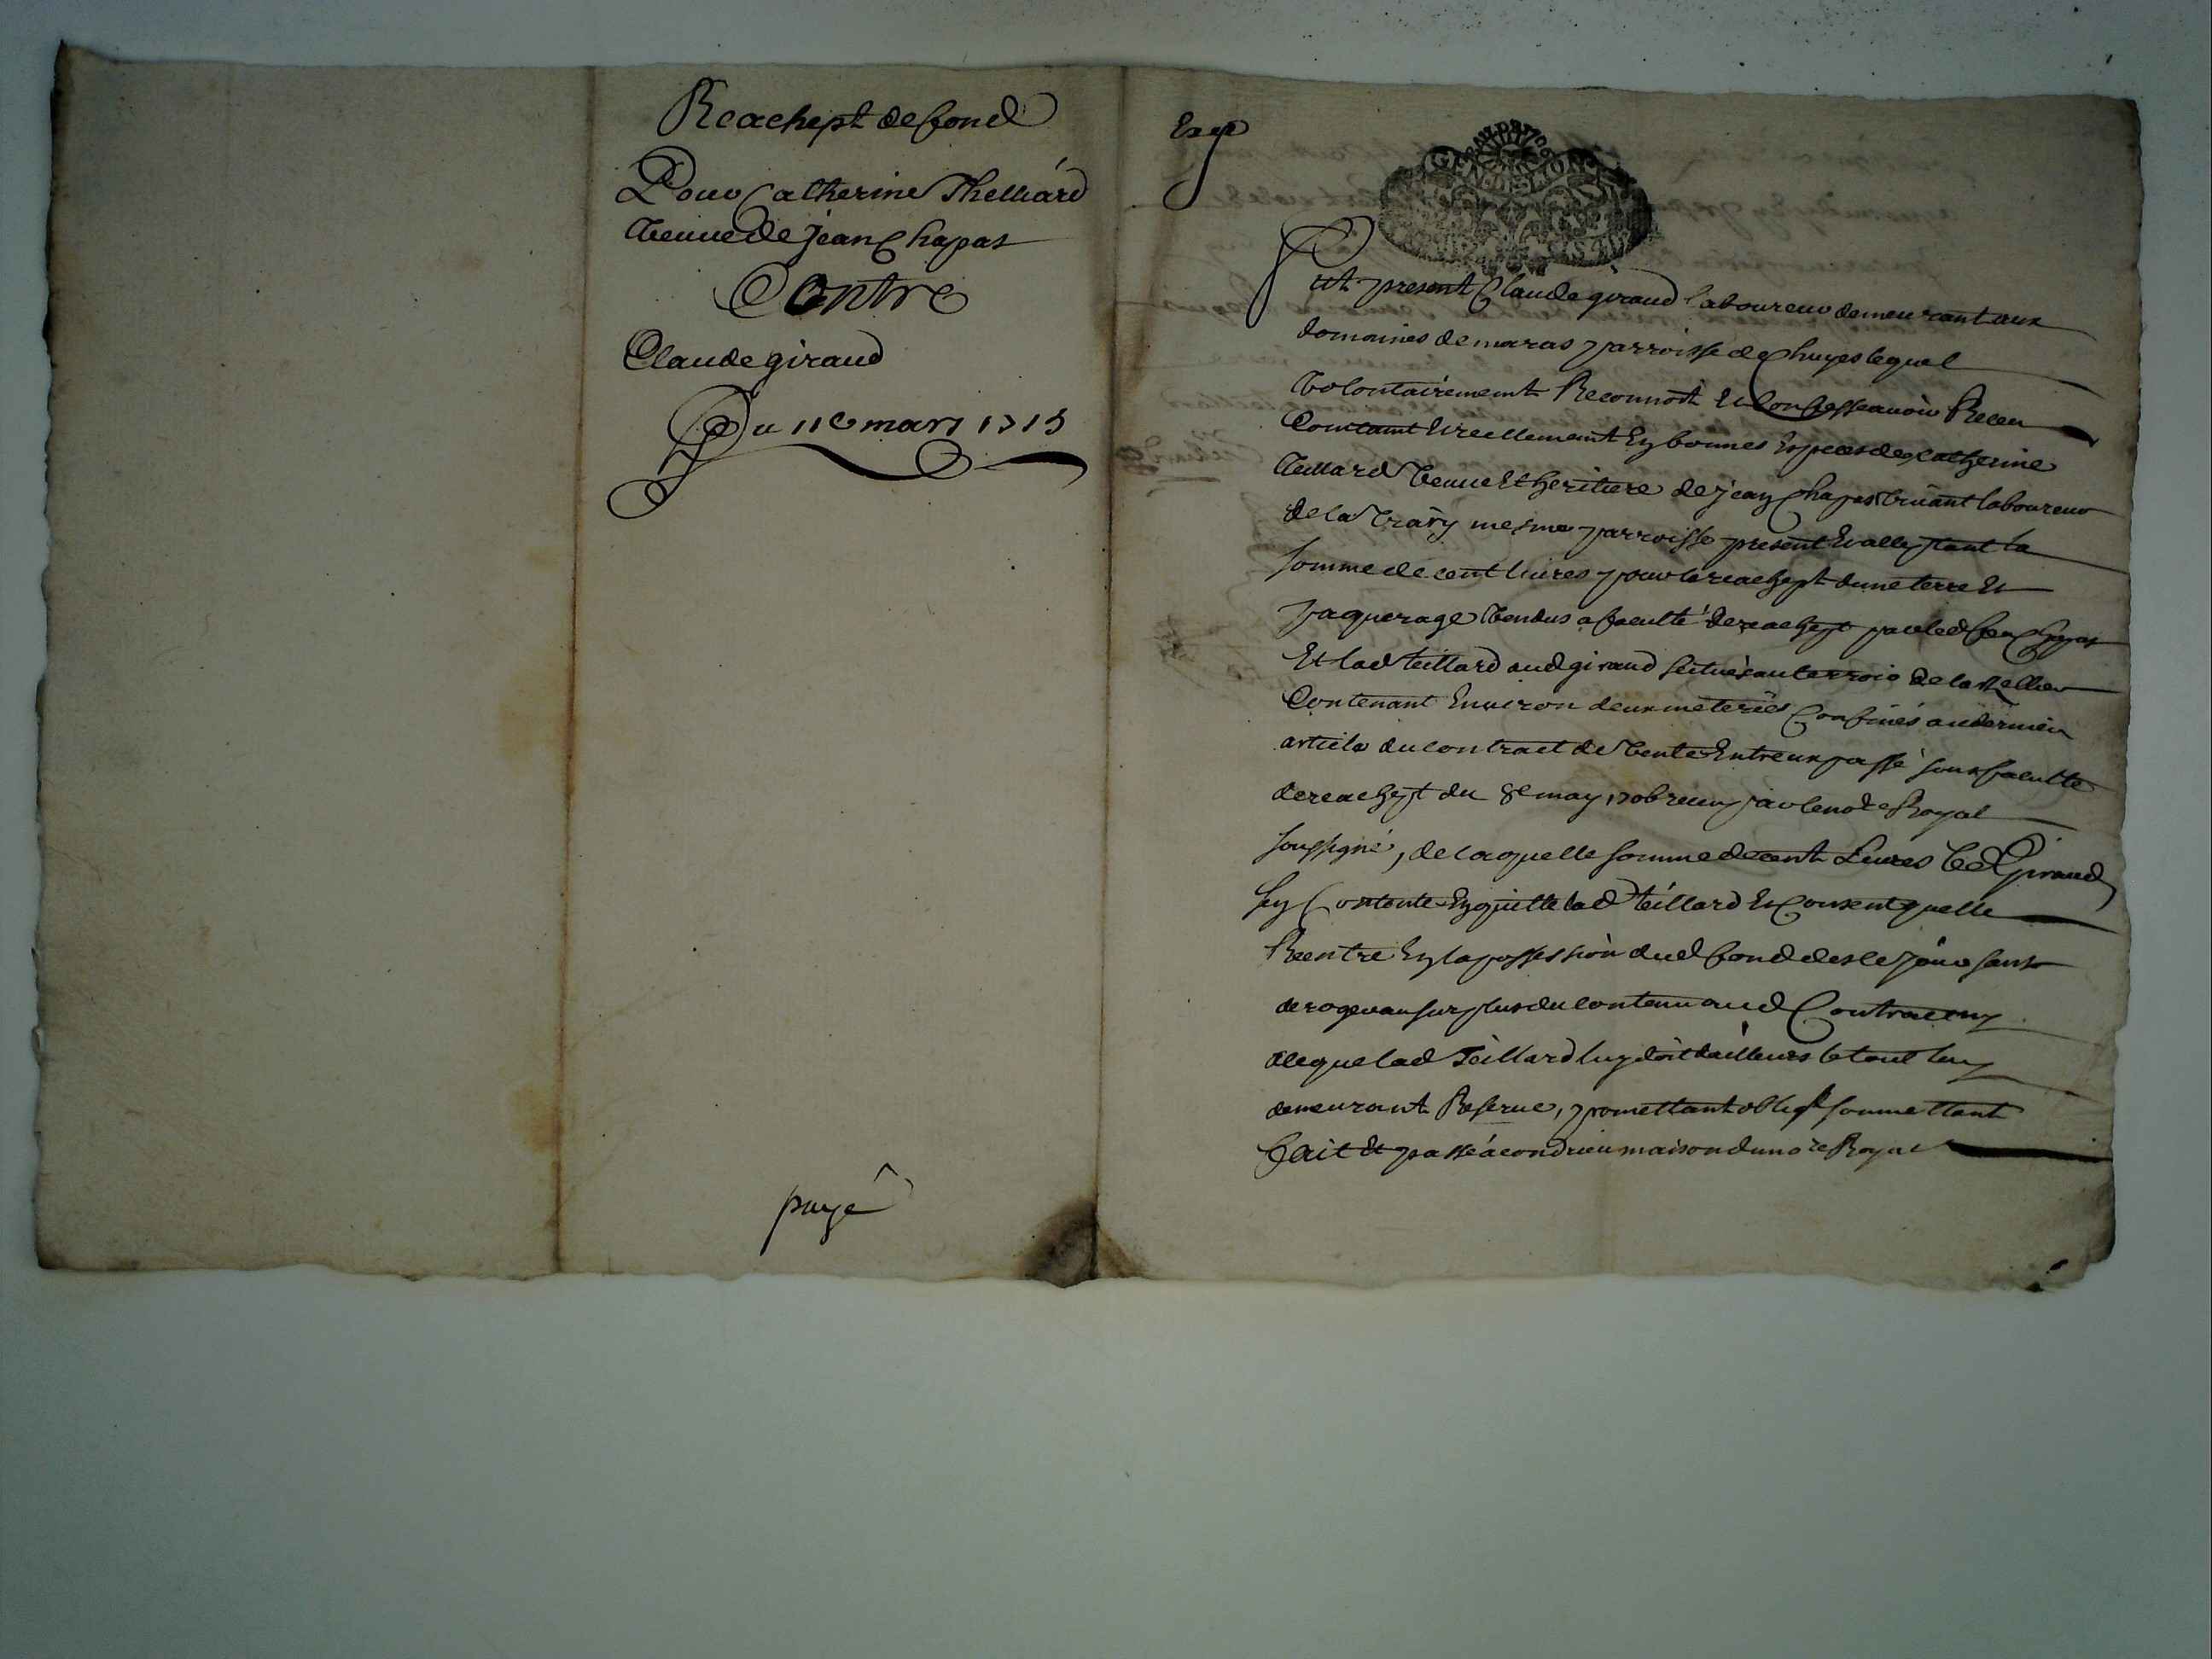 Reachept de fond
Pour Catherine Thelliard
veuve de jean Chapas
Contre
Claude giraud
Du 11e mars 1715
payé
Exp
GENERALITE
LION
Fut present Claude giraud laboureur demeurant aux
domaines de maras parroisse de Chuyes lequel
volontairement Reconnoit et Confesse avoir Receu
Comtamt et reellement en bonnes Especes de Catherine
teillard veuve et heritiere de jean Chapas vivant laboureur
de la mesme parroisse present et acceptant la
somme de cent livres pour le reachept dune terre et
paquerage vendus a faculté de reachept par led feu Chapas
Et lad teillard aud giraud scitués au terroir de
Contenant Environ deux meterées Confinés au dernier
article du contract de vente Entreux passé sous faculté
de reachept du 8e may receu par le note Royal
soussigné, de laquelle somme de cent Livres led Giraud
sen Contente En quitte lad teillard et Consent quelle
Reentre En la possession dud fond des ce jour sans
deroger au surplus du contenu aud Contract ny
a ce que lad Teillard luy doit dailleurs le tout luy
demeurant Reservé, promettant oblig soumettant
Fait Et passé a condrieu maison du note Royal